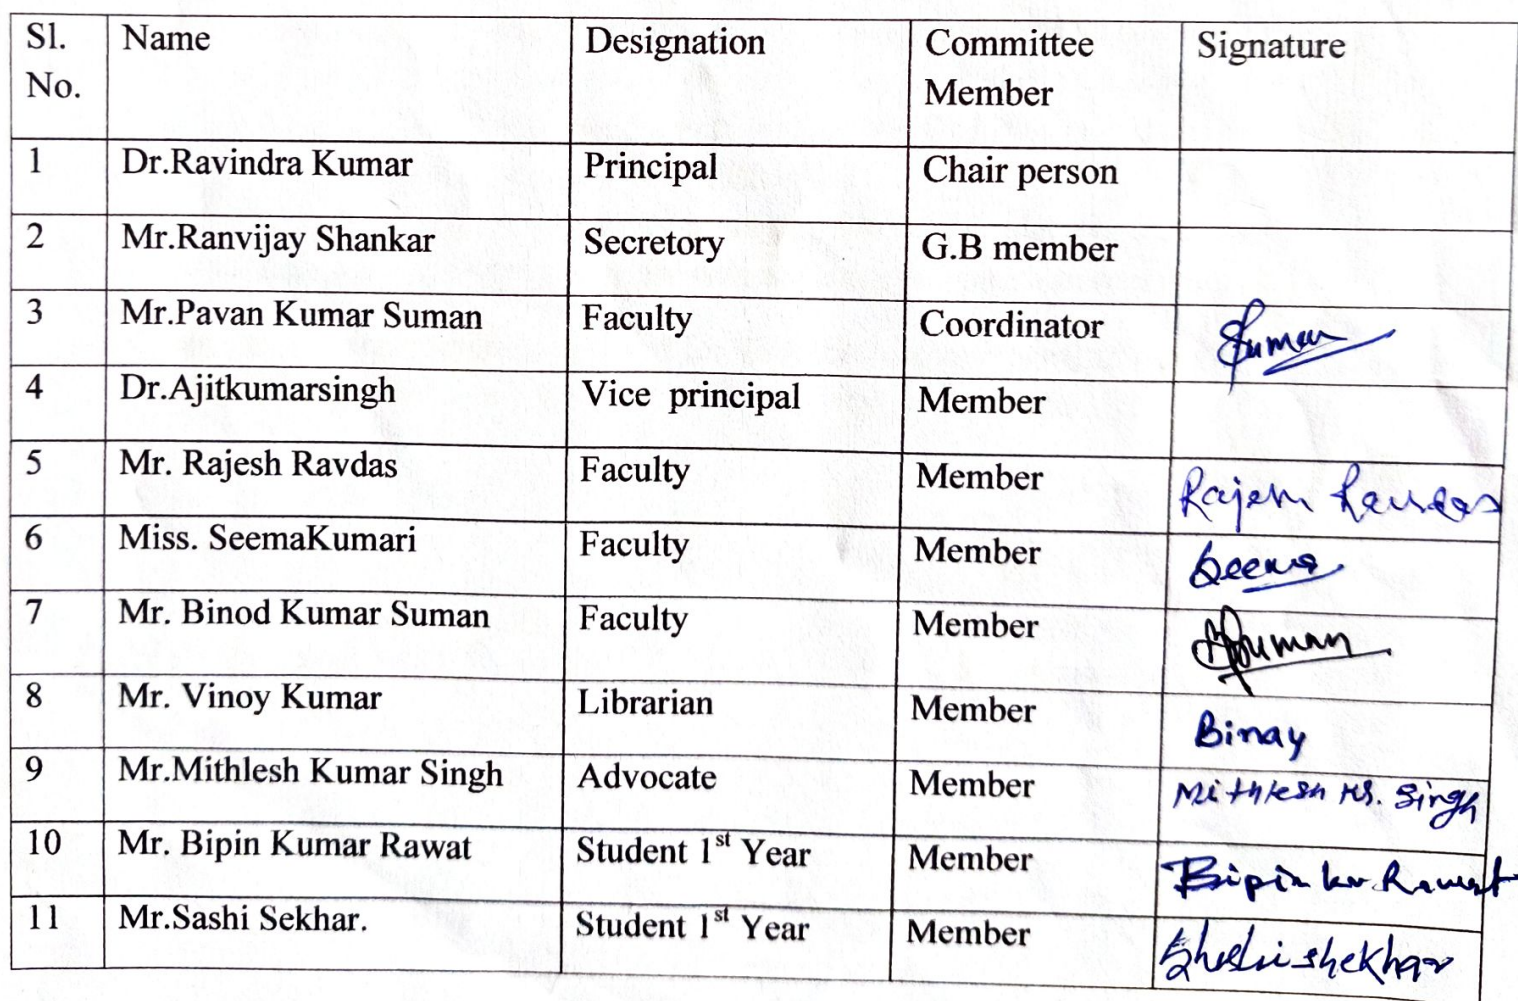 Sl. No. Name Designation Committee Member Signature
1 Dr.Ravindra Kumar Principal Chair person
2 Mr.Ranvijay Shankar Secretory G.B member
3 Mr.Pavan Kumar Suman Faculty Coordinator Suman
4 Dr.Ajitkumarsingh Vice principal Member
5 Mr. Rajesh Ravdas Faculty Member Rajesh Ravdas
6 Miss. SeemaKumari Faculty Member Seema
7 Mr. Binod Kumar Suman Faculty Member Suman
8 Mr. Vinoy Kumar Librarian Member Binay
9 Mr.Mithlesh Kumar Singh Advocate Member Mithlesh Kr. Singh
10 Mr. Bipin Kumar Rawat Student 1st Year Member Bipin kr. Rawat
11 Mr.Sashi Sekhar. Student 1st Year Member Shashi shekhar